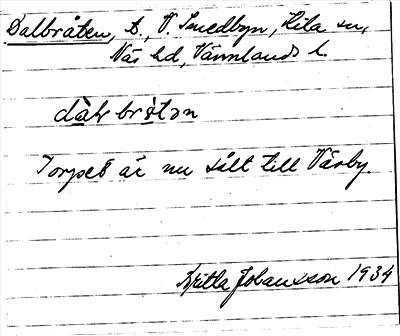 Dalbråten, t., V. Smedbyn, Hila sn,
Näs hd, Värmlands l.
dàlbrɔ̀tən
Torpet är nu sålt till Värby.
Britta Johansson 1934